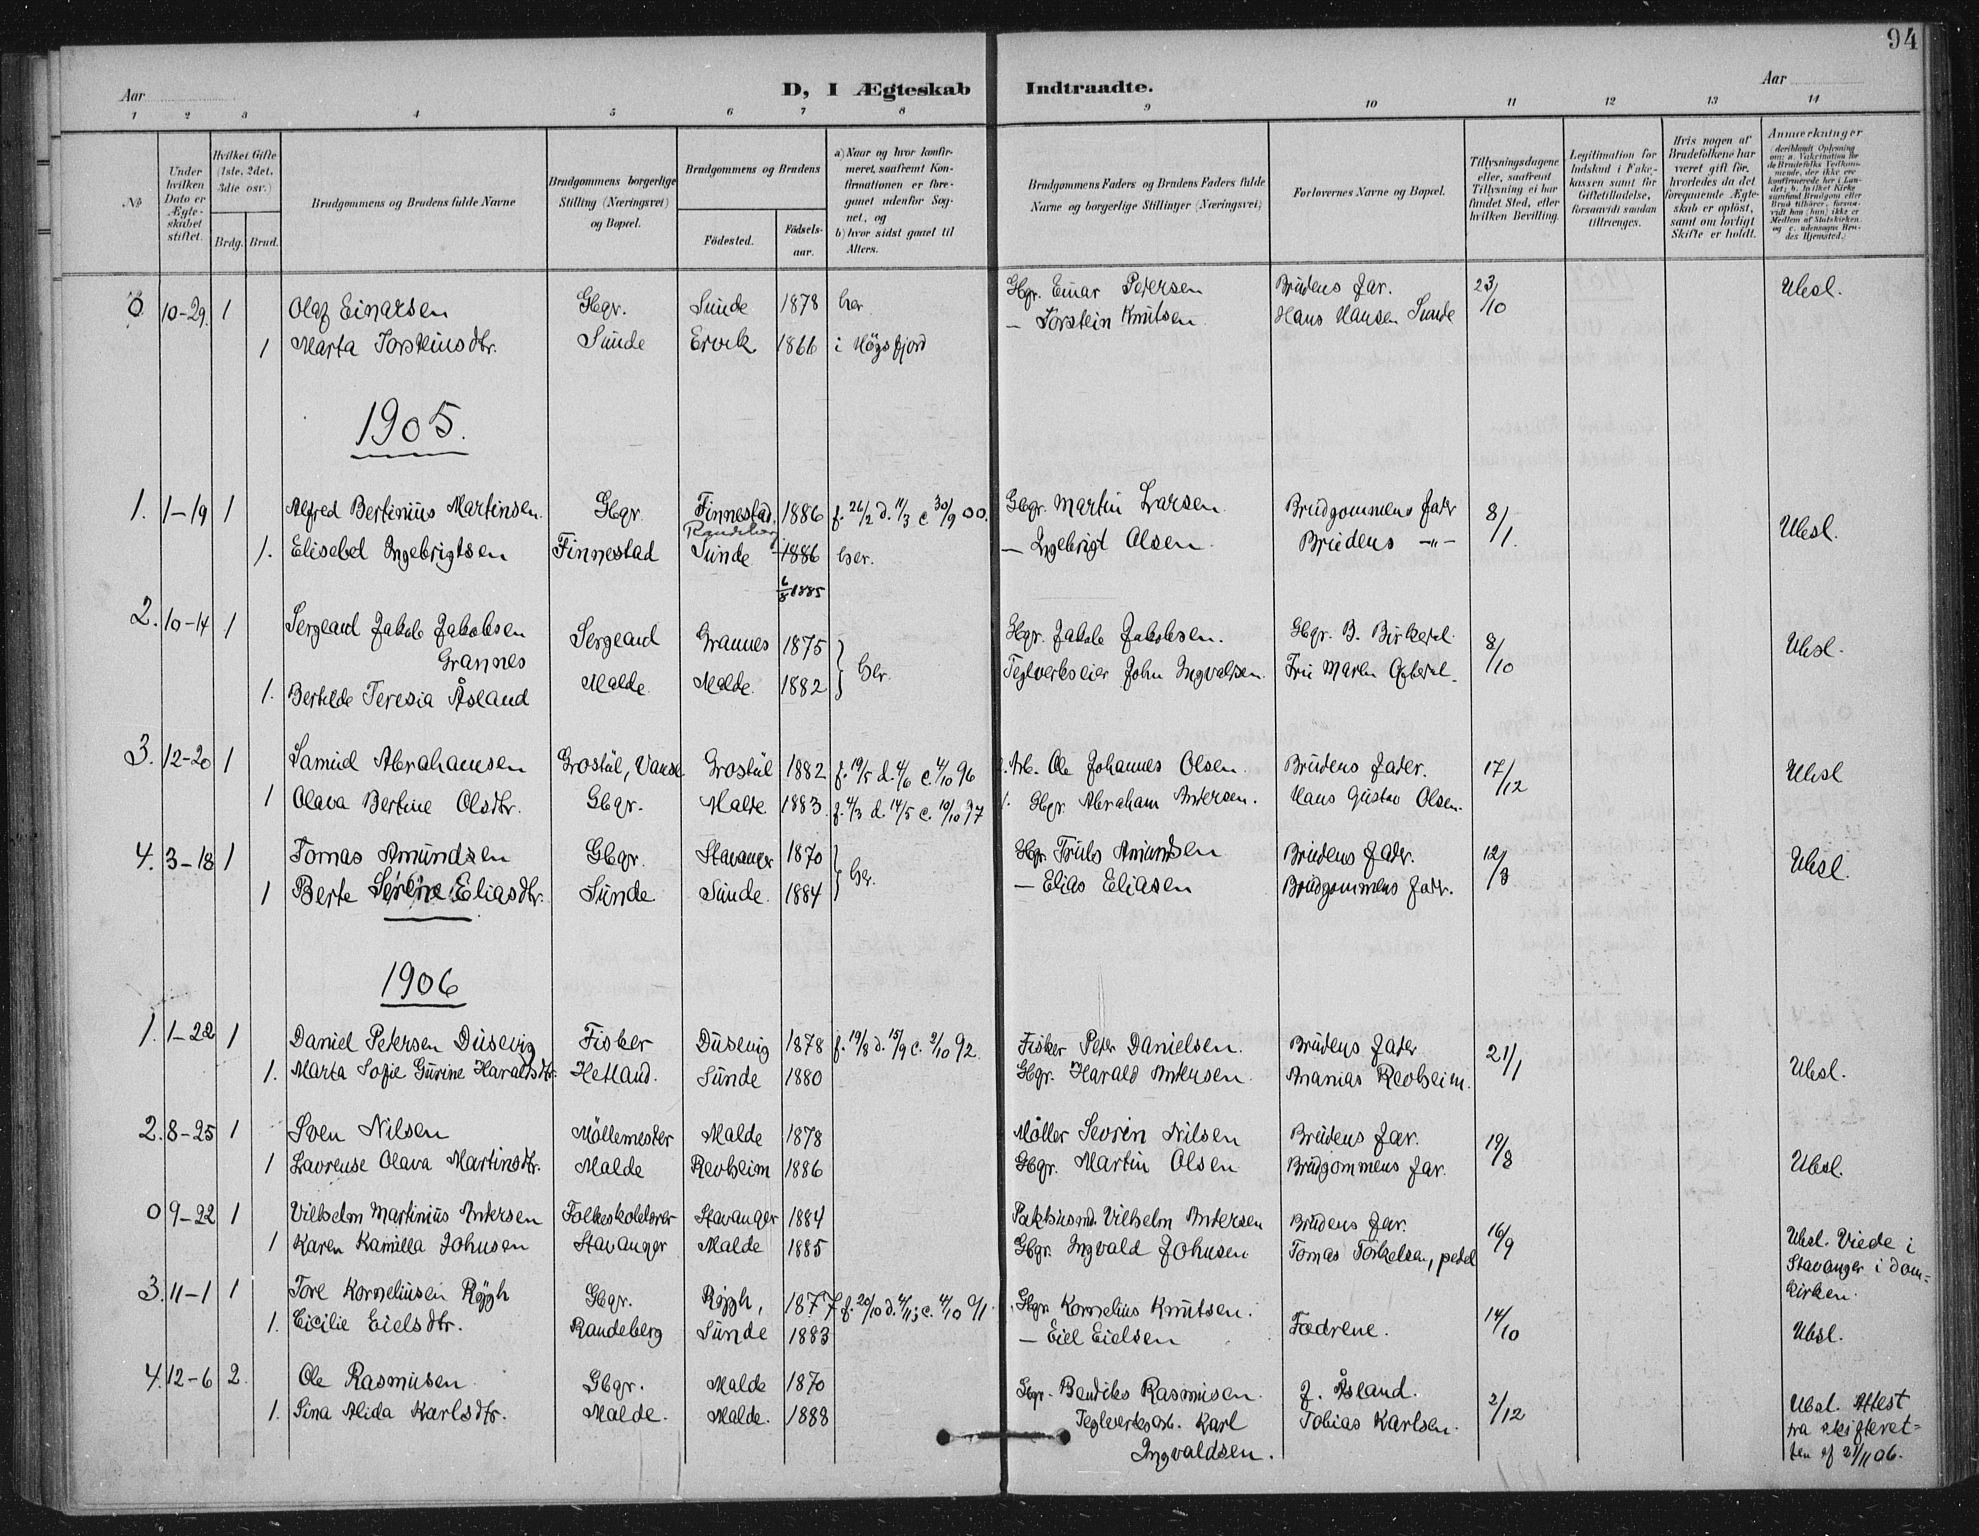 94
Aar
D, I Ægteskab Indtraadte.
Aar
1 2 3 4 5 6 7 8 9 10 11 12 13 14
No
Under hvilken Dato er Ægteskabet stiftet.
Hvilket Gifte (1ste, 2det, 3die osv.)
Brdg. Brud.
Brudgommens og Brudens fulde Navne
Brudgommens borgerlige Stilling (Næringsvei) og Bopæl.
Brudgommens og Brudens
Fødested. Fødselsaar.
a) Naar og hvor konfirmeret, saafremt Konfirmationen er foregaaet udenfor Sognet, og
b) hvor sidst gaaet til Alters.
Brudgommens Faders og Brudens Faders fulde Navne og borgerlige Stillinger (Næringsvei)
Forlovernes Navne og Bopæl.
Tillysningsdagene eller, saafremt Tillysning ei har fundet Sted, efter hvilken Bevilling.
Legitimation for Indskud i Enkekassen samt for Giftetilladelse, forsaavidt saadan tiltrænges.
Hvis nogen af Brudefolkene har været gift før, hvorledes da det foregaaende Ægteskab er opløst, samt om lovligt Skifte er holdt.
Anmærkninger
(deriblandt Oplysning om: a. Vakcination for de Brudefolks Vedkommende, der ikke ere konfirmerede her i Landet; b. hvilket Kirkesamfund Brudgom eller Brud tilhører, forsaavidt han (hun) ikke er Medlem af Statskirken, og c. udensogns Brudes Hjemsted.)
0 10-29. 1 Olaf Einarsen Gbgr. Sunde 1878 her Gbgr. Einar Petersen Brudens far. 23/10 Ubesl.
1 Marta Torsteinsdtr. Sunde Ervik 1866 i Högsfjord — Torstein Knutsen Hans Hansen Sunde
1905.
1. 1-19 1 Alfred Bertinius Martinsen. Gbgr. Finnestad, Randeberg 1886 f. 26/2 d. 14/3 c. 30/9 00. Gbgr. Martin Larsen. Brudgommens fader 8/1. Ubesl.
1. Elisabet Ingebrigtsen Finnestad Sunde 1886 her. — Ingebrigt Olsen. Brudens —"—
6/8 1885
2. 10-14 1 Sergeand Jakob Jakobsen Sergeand Grannes 1875 her. Gbgr. Jakob Jakobsen. Gbgr. B. Birkeland. 8/10 Ubesl.
Grannes
1. Bertilde Teresia Åsland Malde. Malde. 1882 Teglverkseier John Ingvaldsen.
3. 12-20 1 Samuel Abrahamsen Grostøl, Vanse. Grostøl 1882 f. 19/5 d. 4/6 c. 4/10 96 2. Arb. Ole Johannes Olsen. Brudens fader. 17/12 Ubesl
1 Olava Bertine Olsdtr. Gbgr. Malde 1883. f. 4/3 d. 14/5 c. 10/10 97 1. Gbgr. Abraham Andersen. Hans Gustav Olsen.
4. 3-18 1 Tomas Amundsen Gbgr. Stavanger 1870 her. Gbgr. Truls Amundsen Brudens fader. 12/3 Ubesl.
1 Berte Serine Eliasdtr. Sunde Sunde. 1884 — Elias Eliasen Brudgommens fader.
1906
1. 1-22 1 Daniel Petersen Dusevig Fisker Dusevig 1878 f. 19/8 d. 15/9 c. 2/10 92. Fisker Peder Danielsen. Brudens fader 21/1 Ubesl.
1. Marta Sofie Gurine Haraldsdtr. Hetland. Sunde 1880 Gbgr. Harald Andersen. Ananias Revheim.
2. 8-25 1 Sven Nilsen Möllemester Malde 1878 Möller Sevrin Nilsen Brudens far. 19/8 Ubesl.
1 Lavrense Olava Martinsdtr. Malde Revheim 1886 Gbgr. Martin Olsen Brudgommens far.
0 9-22 1 Vilhelm Martinius Andersen Folkeskolelærer Stavanger 1884 Pakhusmd. Vilhelm Andersen Brudens far. 16/9 Ubesl. Viede i
1 Karen Kamilla Johnsen Stavanger Malde 1885 Gbgr. Ingvald Johnsen Tomas Torkelsen, pedel Stavanger i dom=
kirken.
3. 11-1 1 Tore Korneliusen Røygh Gbgr. Røygh, 1877 f. 20/10 d. 4/11; c. 4/10 91. Gbgr. Kornelius Knutsen. Fædrene. 14/10 Ubesl.
1. Cicilie Eielsdtr. Randeberg Sunde 1883 — Eiel Eielsen
4. 12-6 2. Ole Rasmusen Gbgr. Malde 1870 Gbgr. Bendiks Rasmusen. J. Åsland. 2/12 Ubesl. Attest
1. Sina Alida Karlsdtr. Malde. Malde. 1888 Teglverksarb. Karl Tobias Karlsen. fra skifteret=
Ingvaldsen. ten af 21/11 06.